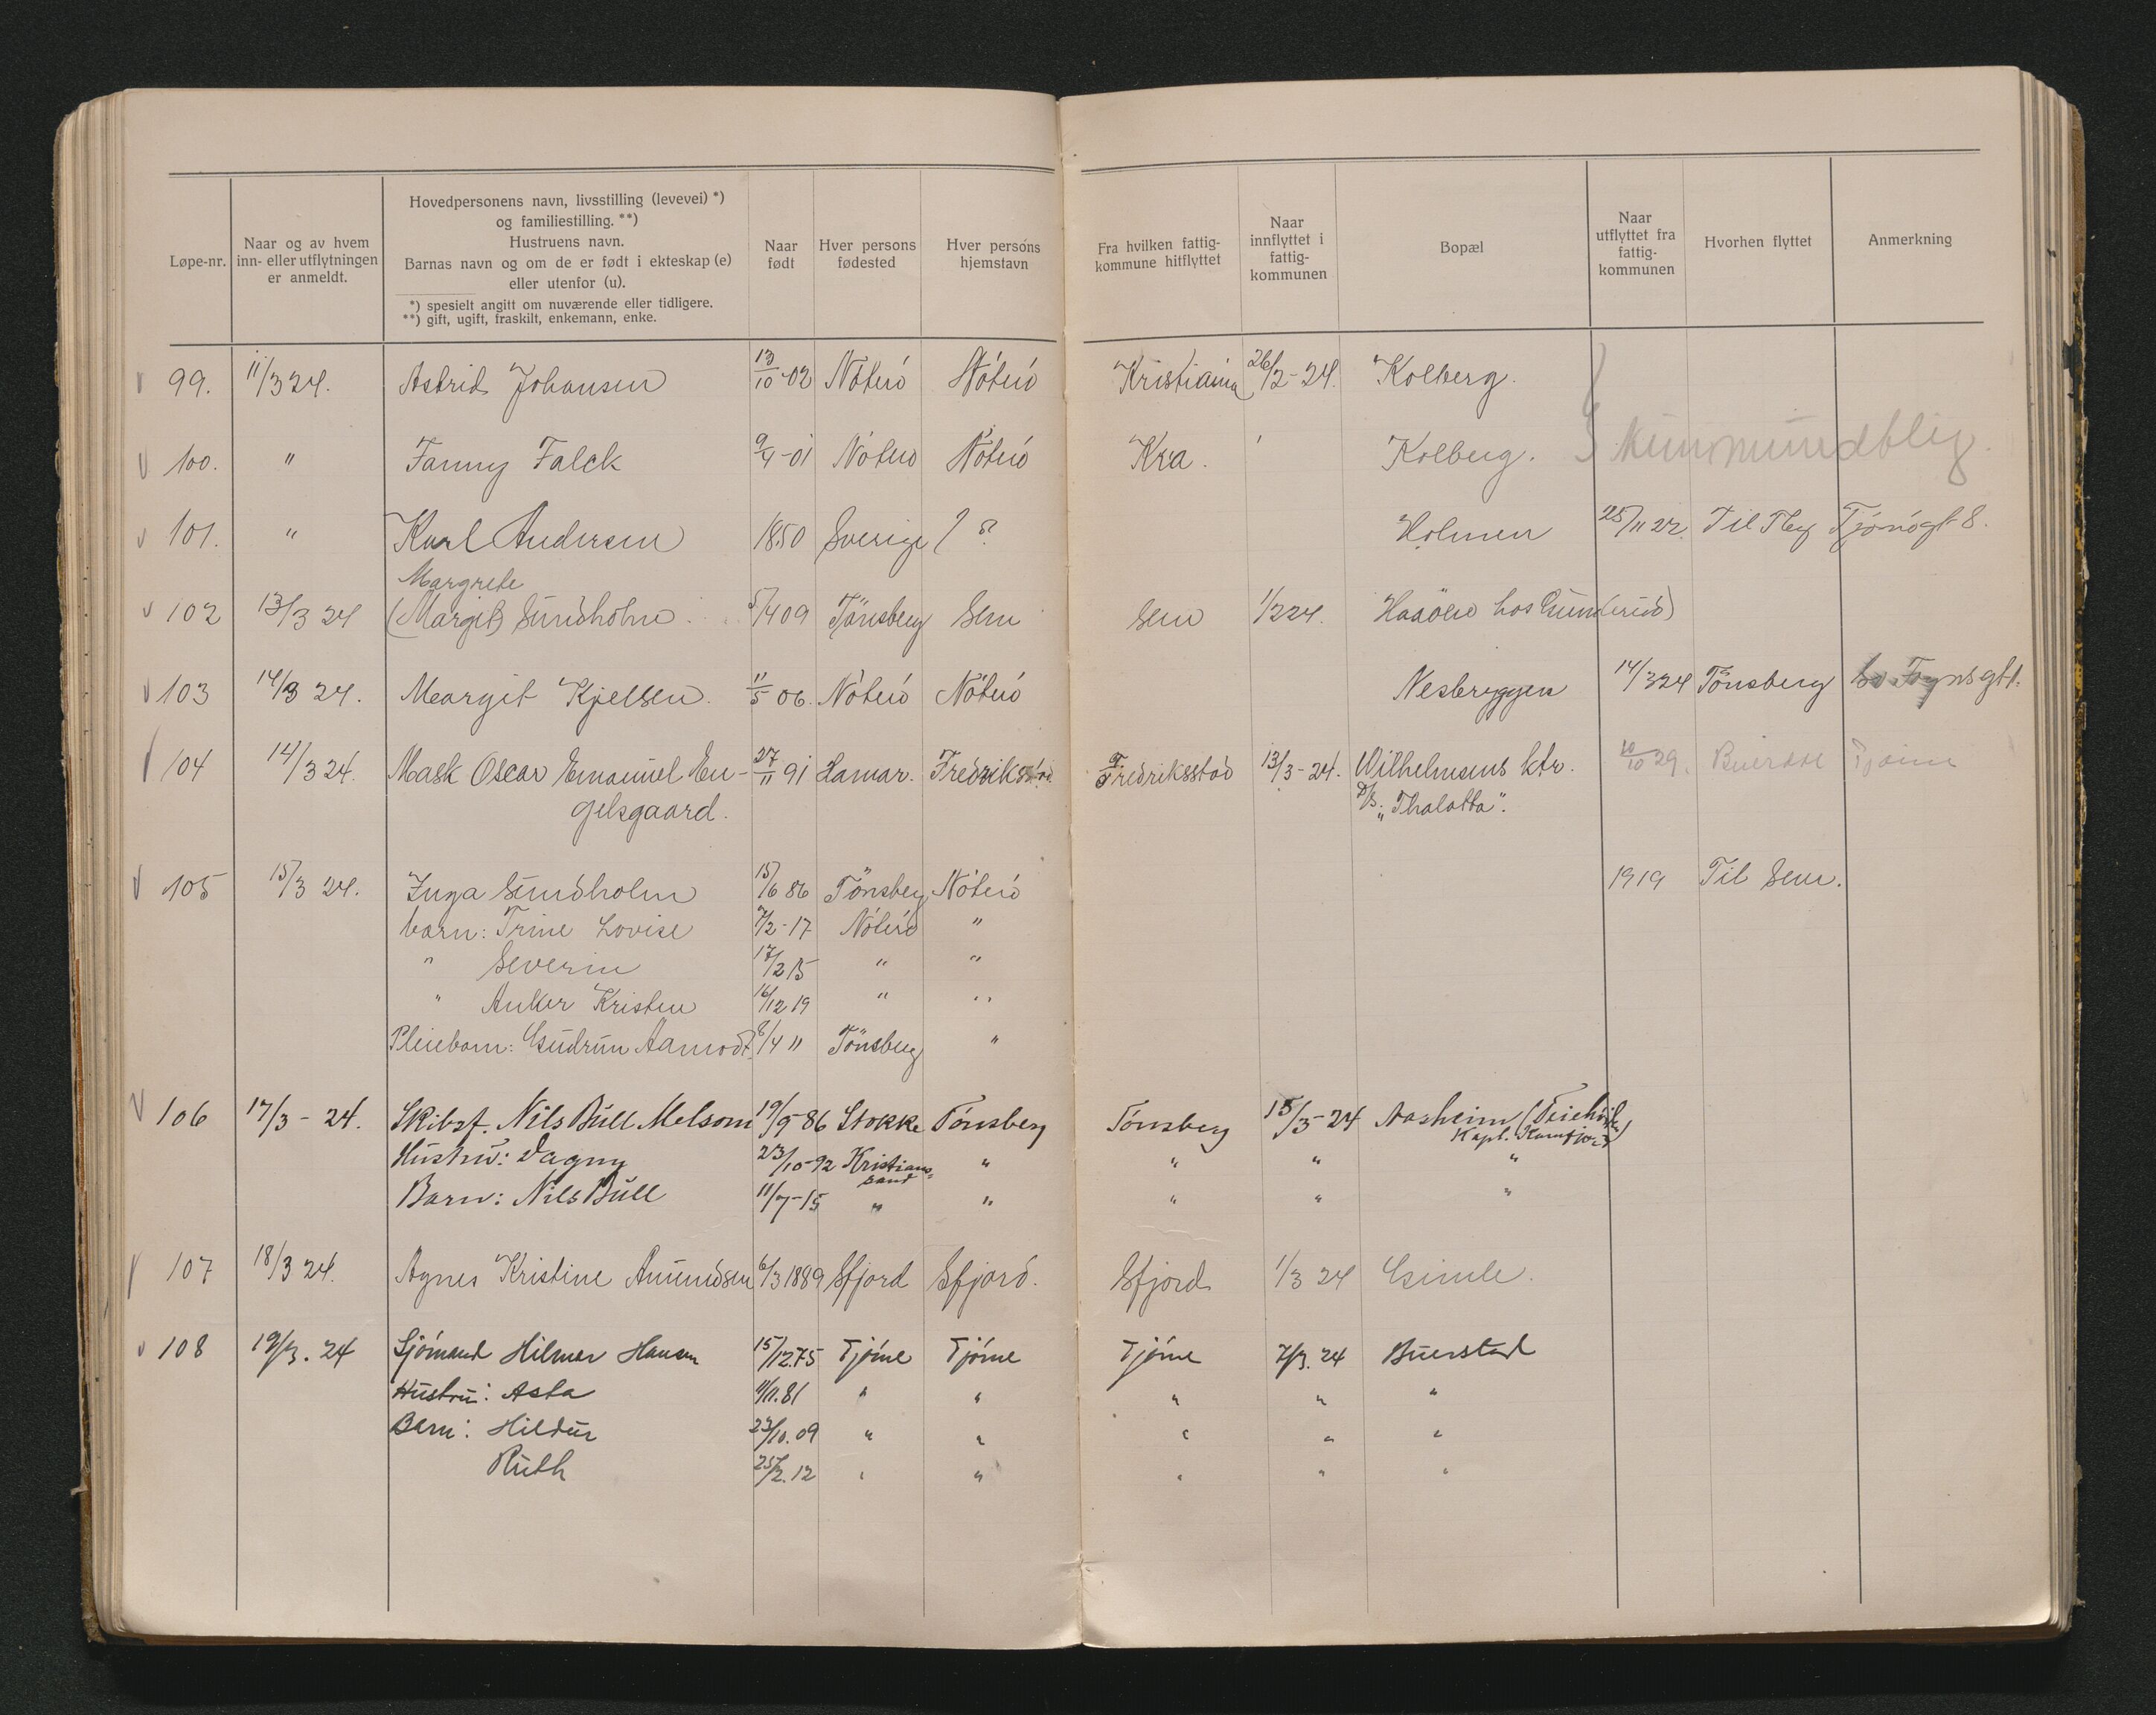 Løpe-nr.
Naar og av hvem
inn- eller utflytningen
er anmeldt.
Hovedpersonens navn, livsstilling (levevei) *)
og familiestilling. **)
Hustruens navn.
Barnas navn og om de er født i ekteskap (e)
eller utenfor (u).
*) spesielt angitt om nuværende eller tidligere.
**) gift, ugift, fraskilt, enkemann, enke.
Naar
født
Hver persons
fødested
Hver persons
hjemstavn
Fra hvilken fattig-
kommune hitflyttet
Naar
innflyttet i
fattig-
kommunen
Bopæl
Naar
utflyttet fra
fattig-
kommunen
Hvorhen flyttet
Anmerkning
99. 11/3 24. Astrid Johansen 13/10-02 Nöterö Nöterö Kristiania 26/2-24. Kolberg.
100. " Fanny Falck 9/4-01 Nöterö Nöterö Kra. Kolberg.
101. " Karl Andersen 1850 Sverige ? Holmen 25/11 22. Til Tbg Tjönögt 8.
Margrete
102 13/3 24 (Margit) Sundholm. 5/4 09 Tönsberg Sem Sem 1/2 24. hos Gunderud)
103 14/3 24. Margit Kjelsen. 11/5 06. Nöterö Nöterö Nesbryggen 14/3 24 Tönsberg
104 14/3 24. Mask Oscar Emanuel En- 27/11 91 Hamar. Fredriksstad Fredriksstad 13/3-24. Wilhelmsens ktr. 10/10 29. Tjøme
gelsgaard. D/S. „Thalatta".
105 15/3 24. Inga Sundholm 15/6 86 Tönsberg Nöterö 1919 Til Sem.
barn: Trine Lovise 7/2-17 Nöterö "
" Severin 17/2 15 " "
" Anker Kristen 16/12 19 " "
Pleiebarn: Gudrun Aamodt. 8/4 11 Tönsberg "
106 17/3-24. Skibsf. Nils Bull Melsom 19/9-86 Stokke Tönsberg Tönsberg 15/3-24 Aasheim
Kapt.
Hustru: Dagny 23/10-92 Kristians- " " " "
sand
Barn: Nils Bull 11/7-15 " " " " "
107 18/3 24. Agnes Kristine Amundsen 6/3 1889 Sfjord Sfjord. Sfjord 1/3 24 Gimle.
108 19/3. 24 Sjömand Hilmar Hansen 15/12.75 Tjöme Tjöme Tjöme 7/3. 24 Buerstad
Hustru: Asta 11/11.81 " " " " "
Barn: Hildur 23/10.09 " " " " "
Ruth 25/2.12 " " " " "